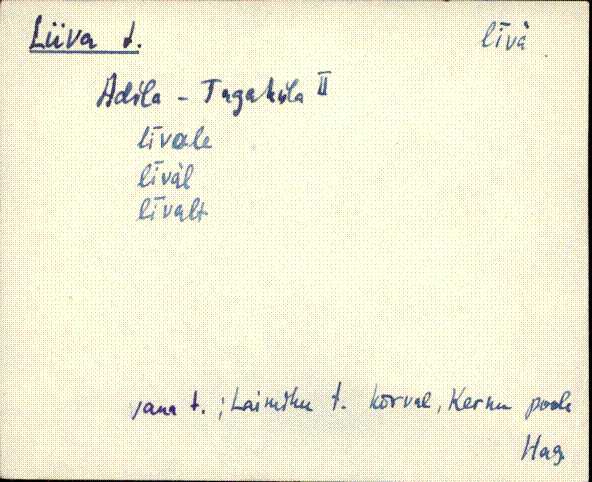 Liiva t. līvà
Adila - Tagaküla II
līvale
līvàl
līvalt
vana t.; Laimiku t. kõrval, Kernu pool
Hag